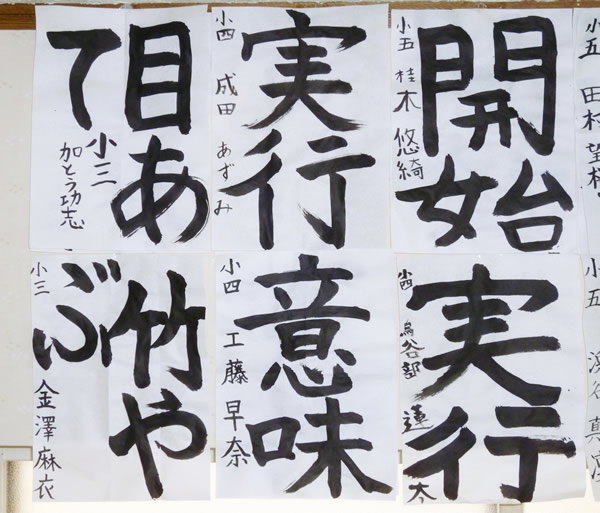 開始
小五 桂木 悠綺
実行
小四 成田 あずみ
目あ
て
小三 加とう功志
実行
小四 烏谷部 蓮太
意味
小四 工藤 早奈
竹や
ぶ
小三 金澤麻衣
小五 田村 望
小五 渋谷 真